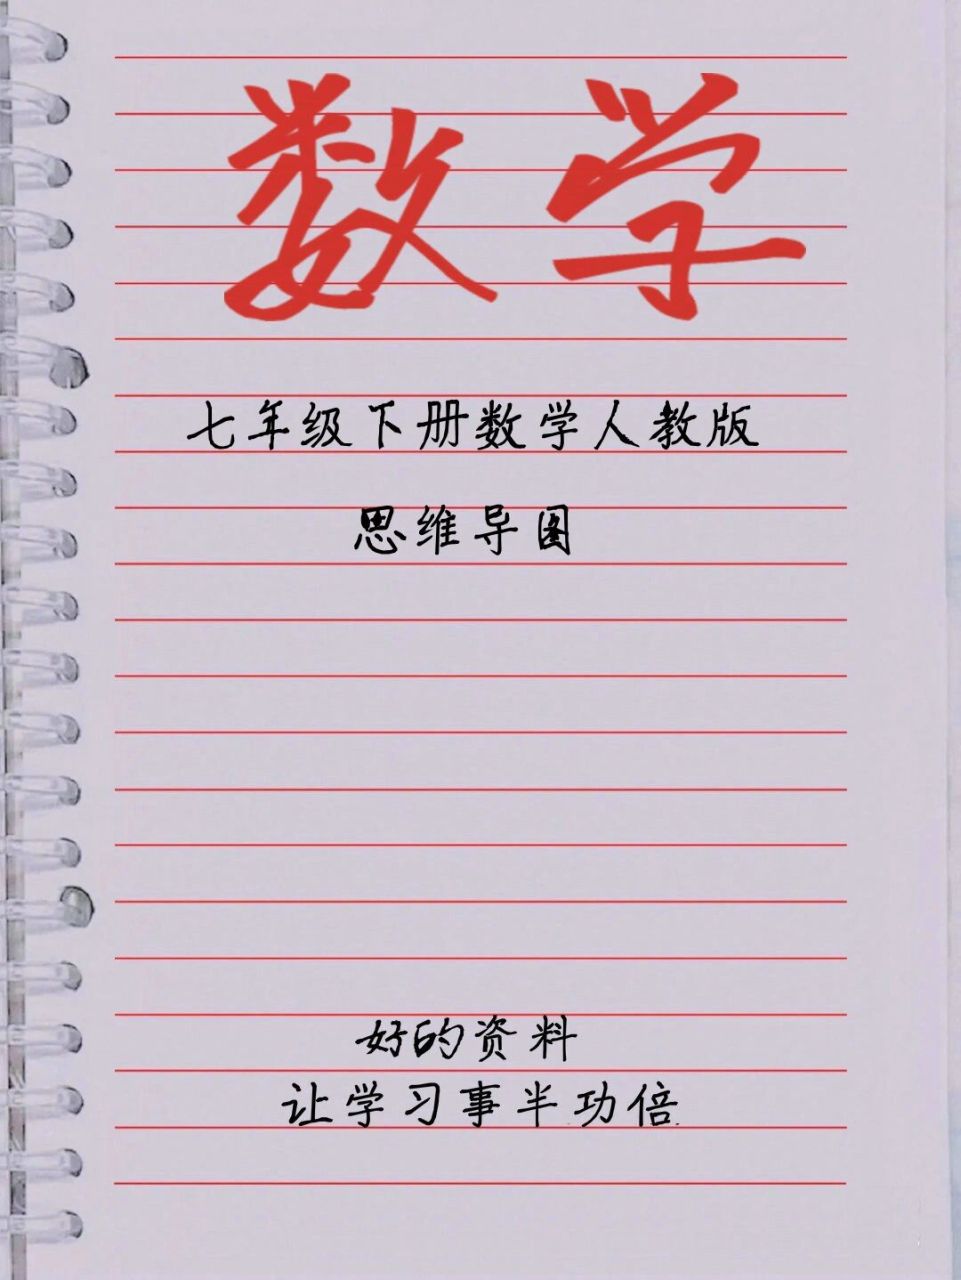 数学
七年级下册数学人教版
思维导图
好的资料
让学习事半功倍